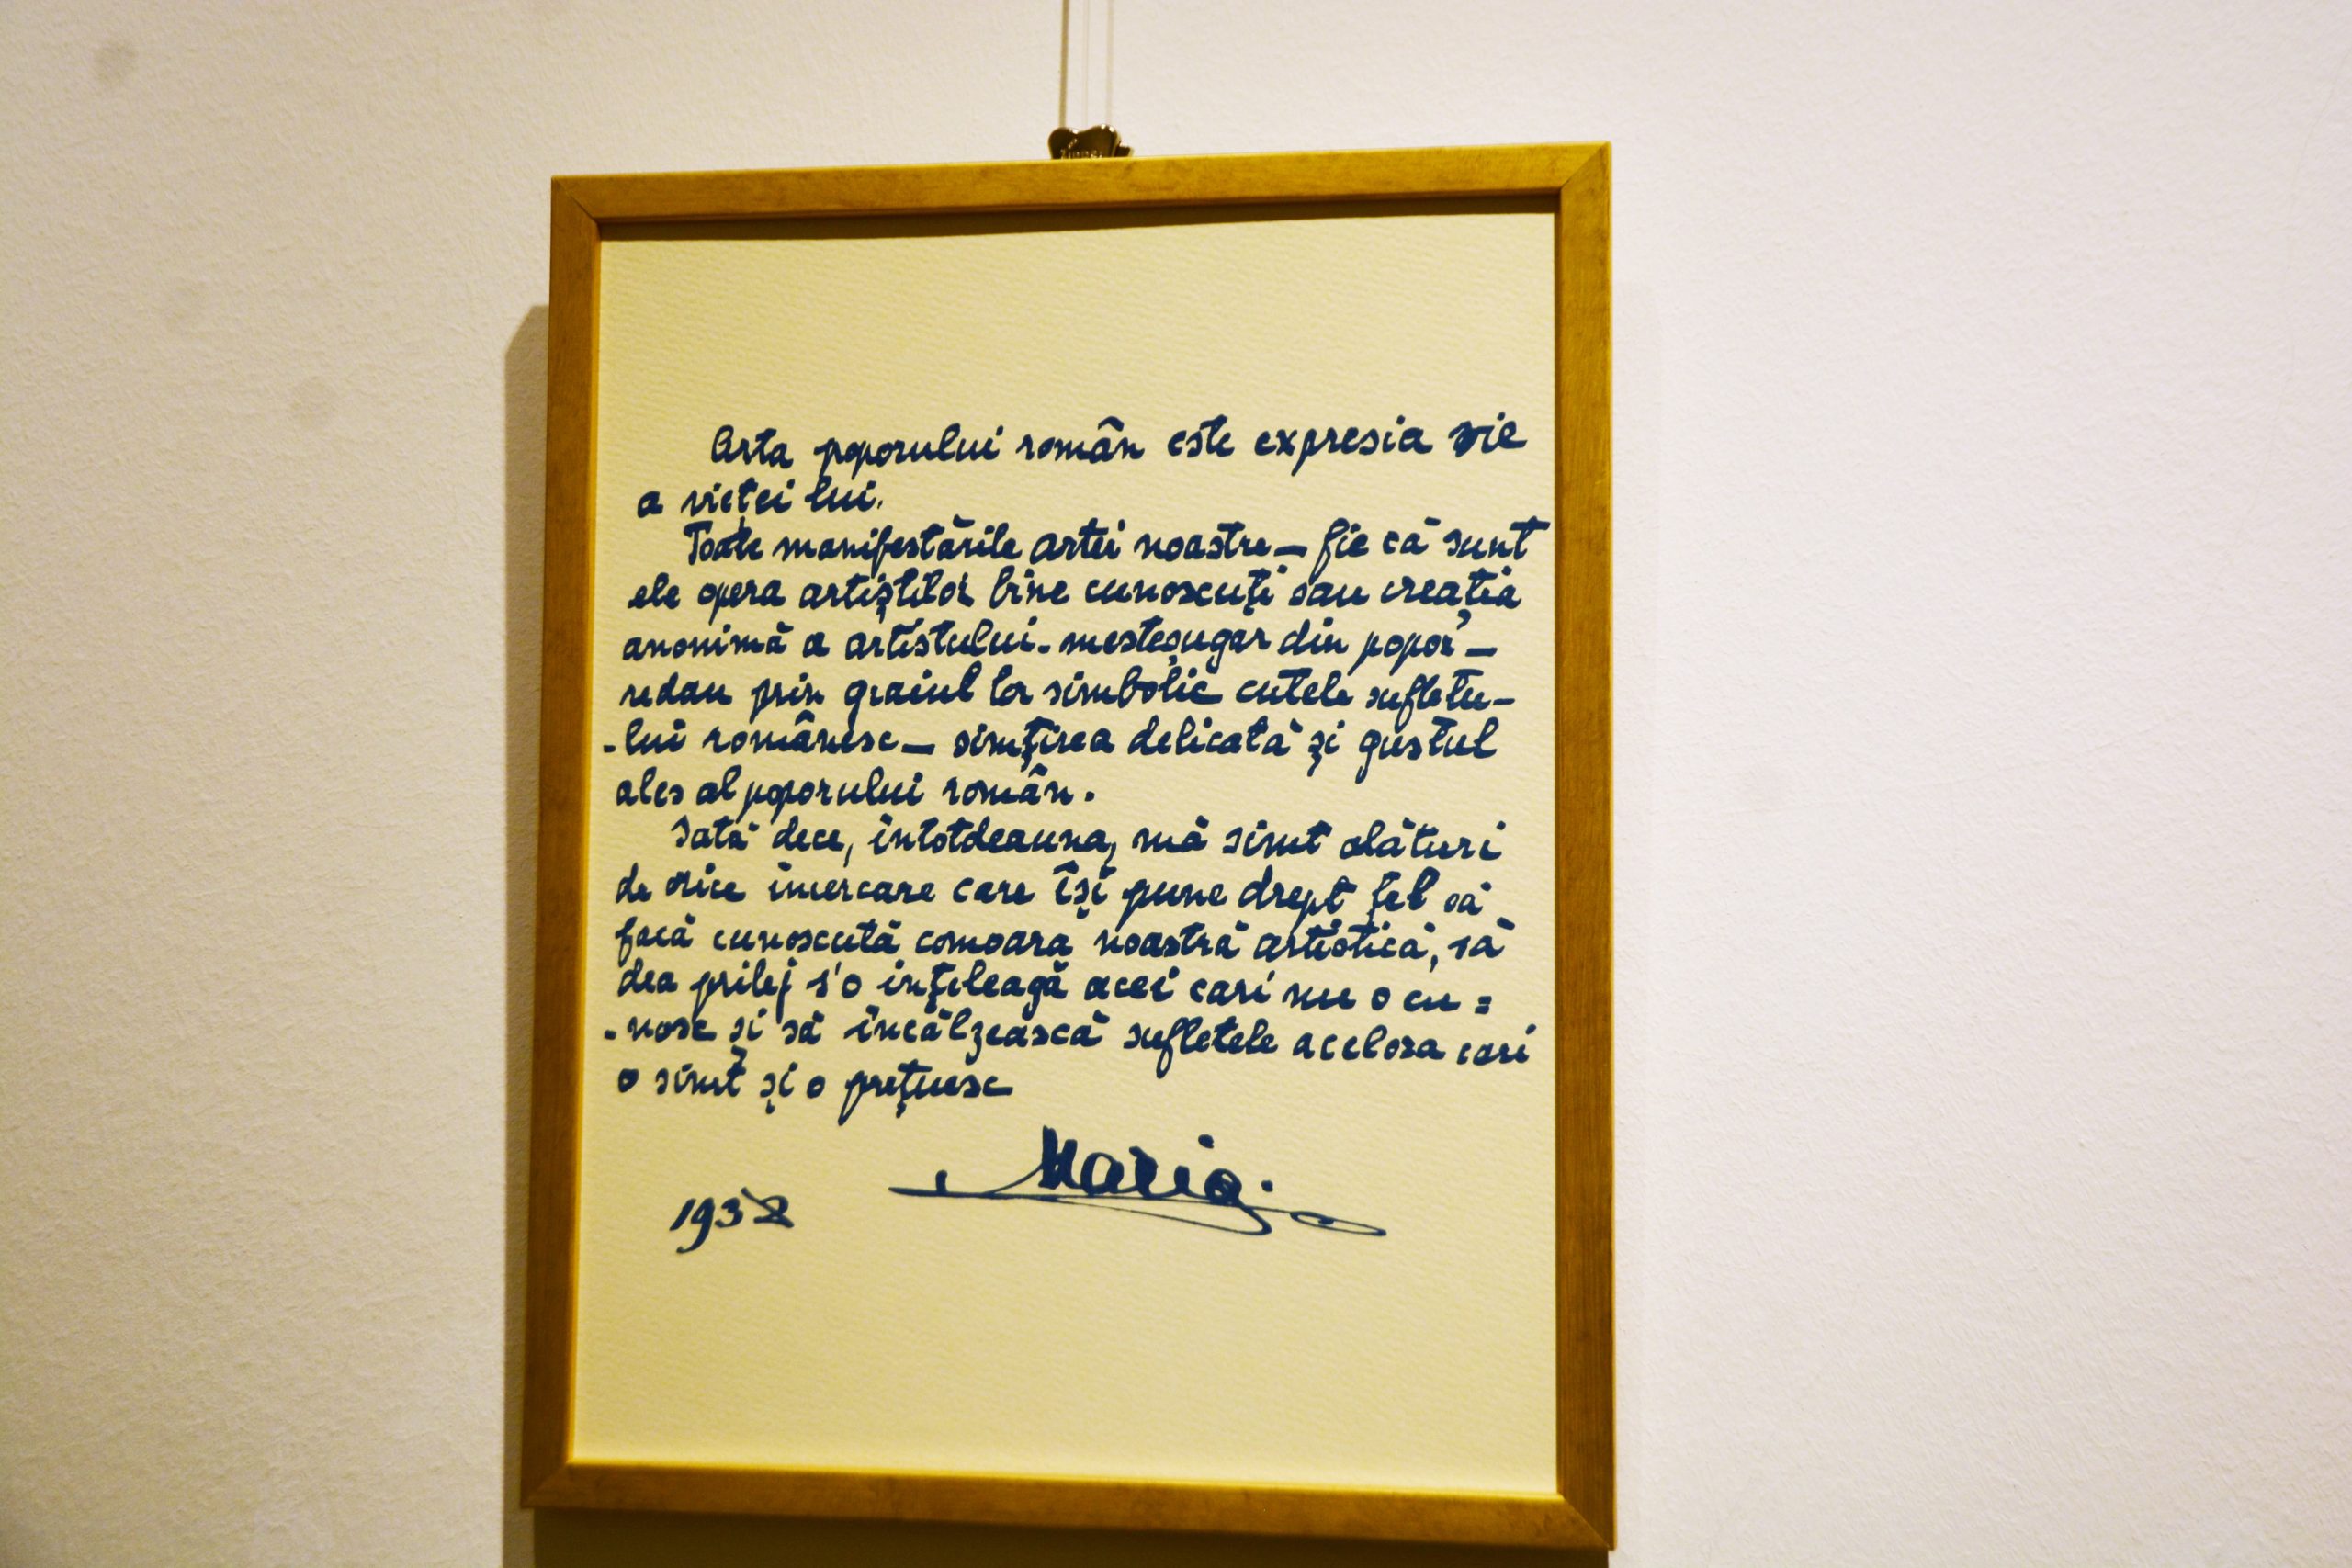 Arta poporului român este expresia vie
a vieței lui.
Toate manifestările artei noastre – fie că sunt
ele opera artiștilor bine cunoscuți sau creația
anonimă a artistului-meșteșugar din popor –
redau prin graiul lor simbolic cutele sufletu-
-lui românesc – simțirea delicată și gustul
ales al poporului român.
Iată dece, întotdeauna, mă simt alături
de orice încercare care își pune drept țel să
facă cunoscută comoara noastră artistică, să
dea prilej s'o înțeleagă acei cari nu o cu=
-nosc și să încălzească sufletele acelora cari
o simt și o prețuesc
Maria